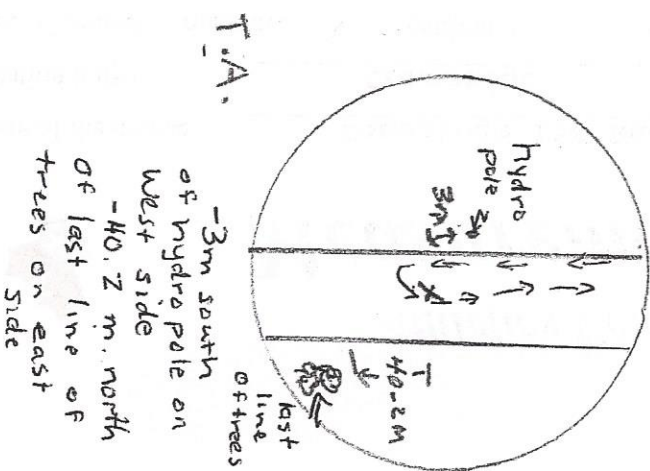 hydro
pole
3m
40.2 m
last
line
of trees
T.A.
-3m south
of hydro pole on
west side
-40.2 m. north
of last line of
trees on east
side